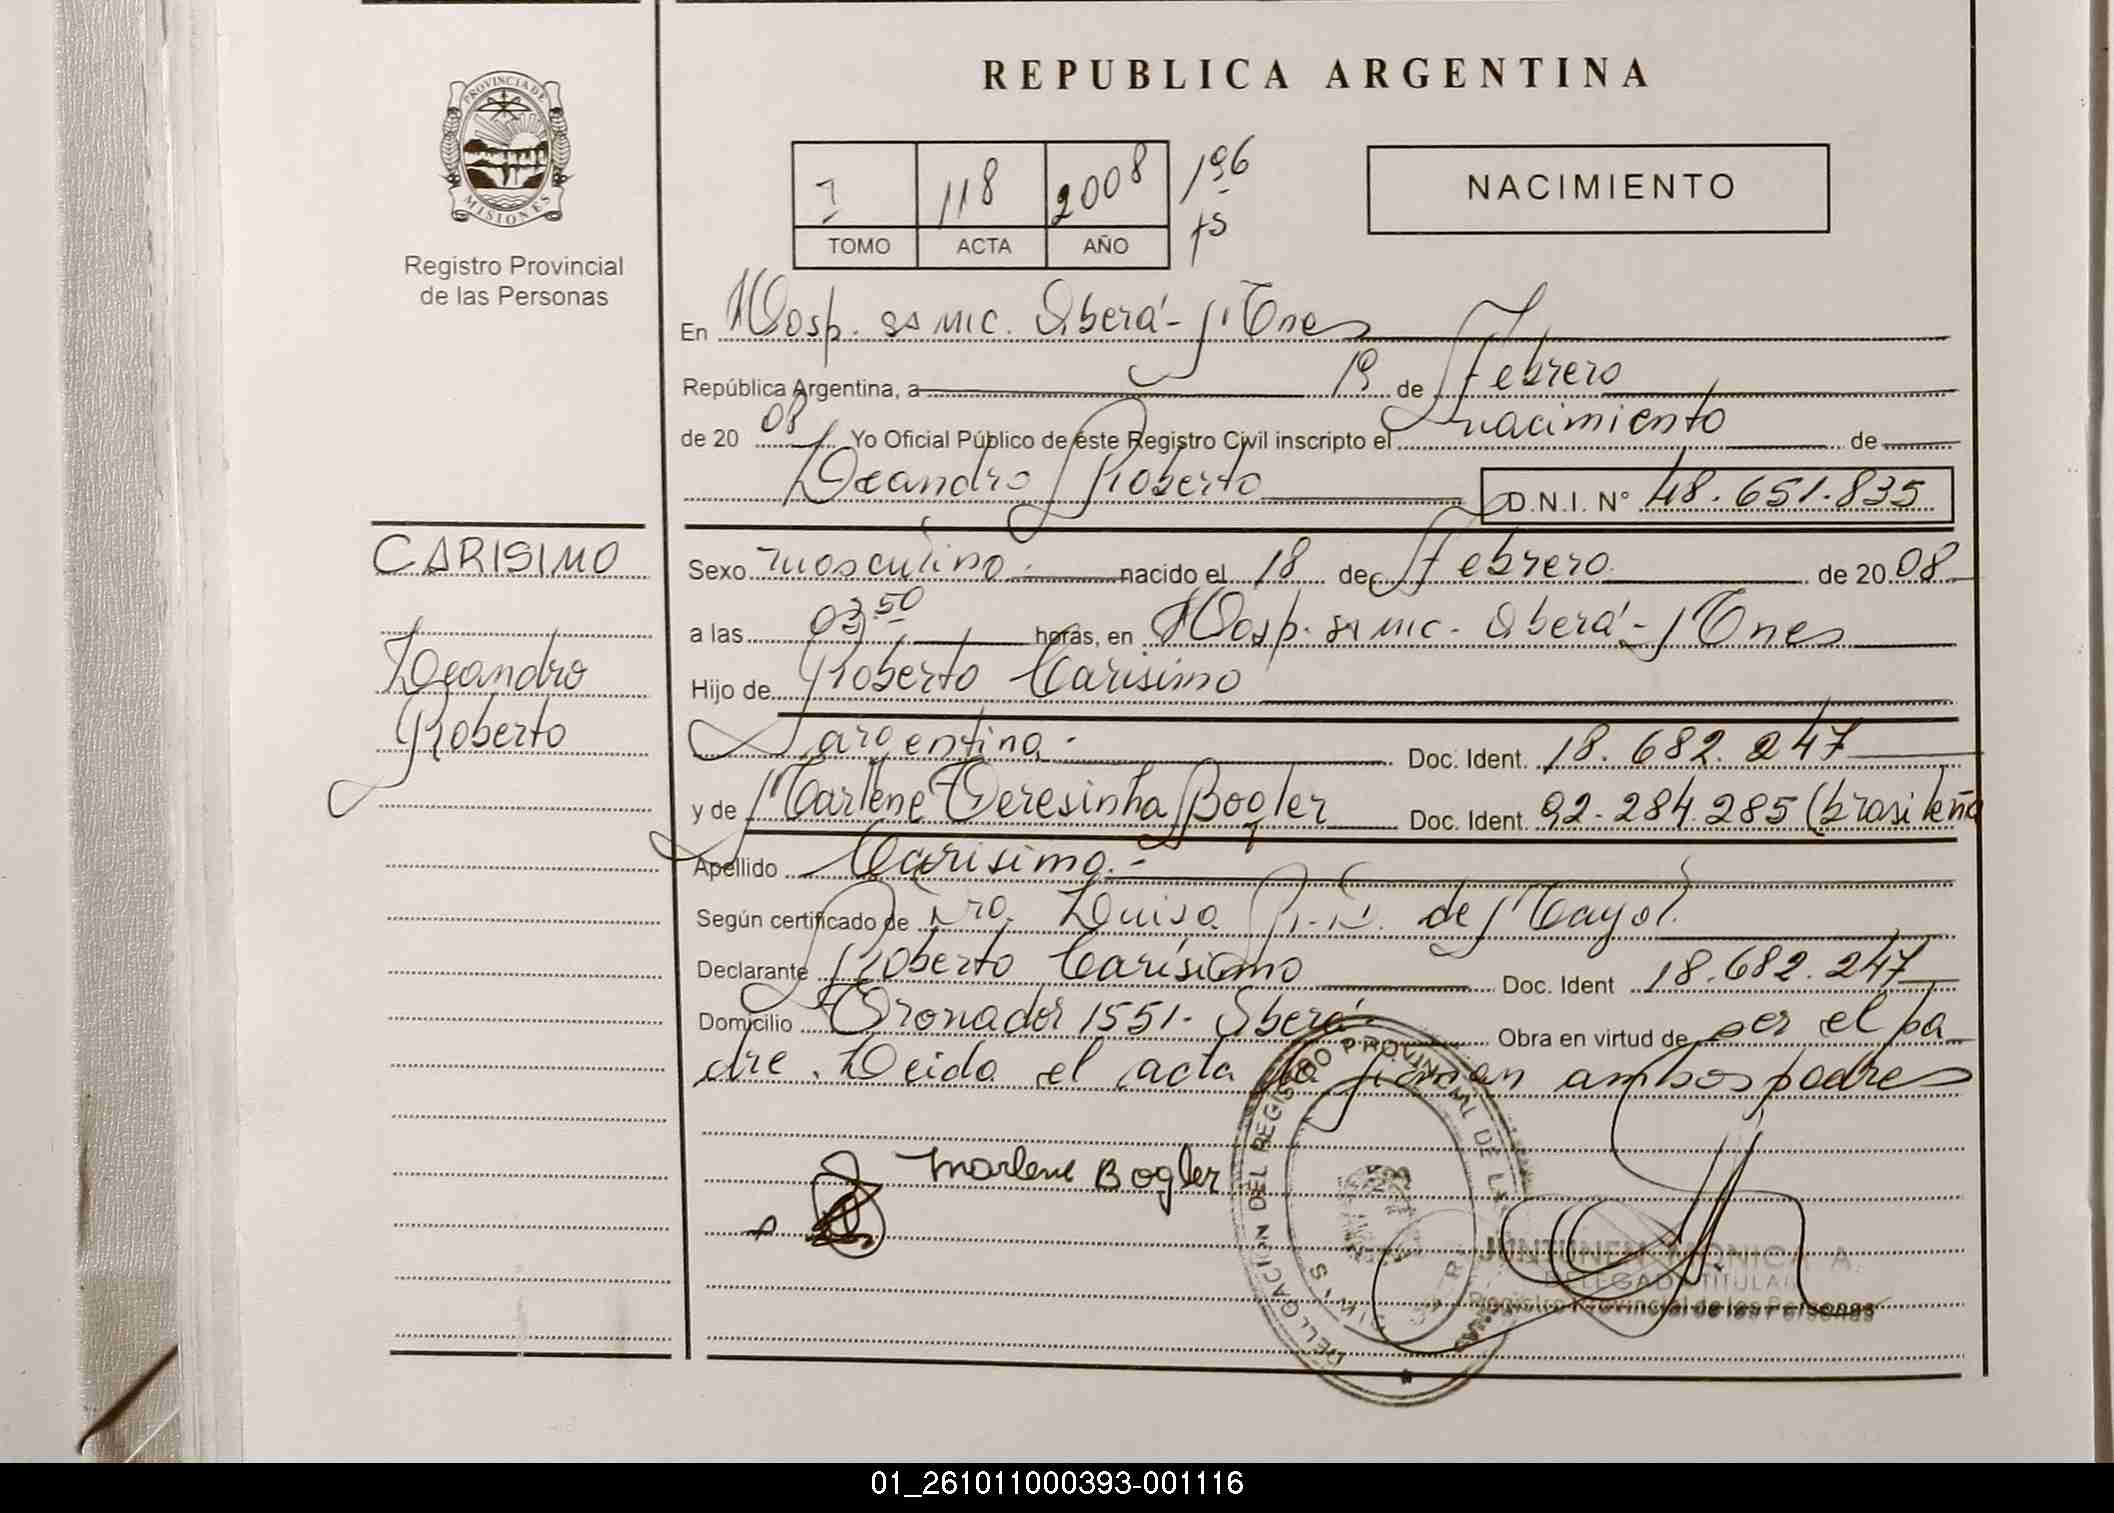 REPUBLICA ARGENTINA
PROVINCIA DE
MISIONES
Registro Provincial
de las Personas
118 2008 196
TOMO ACTA AÑO
NACIMIENTO
En Hosp. Oberá - Mnes
República Argentina, a 19 de Febrero
de 20 08 Yo Oficial Público de éste Registro Civil inscripto el nacimiento de
Leandro Roberto D.N.I. Nº 48.651.835
CARISIMO
Leandro
Roberto
Sexo masculino.- nacido el 18 de Febrero de 20 08
a las 03:50 horas, en Hosp. Oberá - Mnes
Hijo de Roberto Carisimo
argentino - Doc. Ident. 18.682.247
y de Marlene Teresinha Bogler Doc. Ident. 92.284.285 (brasileña
Apellido Carisimo.-
Según certificado de Dra. Luisa de Mayol.
Declarante Roberto Carisimo Doc. Ident 18.682.247
Domicilio Tronador 1551 - Oberá - Obra en virtud de ser el pa
dre. Leida el acta la firman ambos padres
Marlene Bogler
DELEGACION DEL REGISTRO PROVINCIAL DE
MONICA A.
DELEGADA TITULAR
Registro Provincial de las Personas
01_261011000393-001116